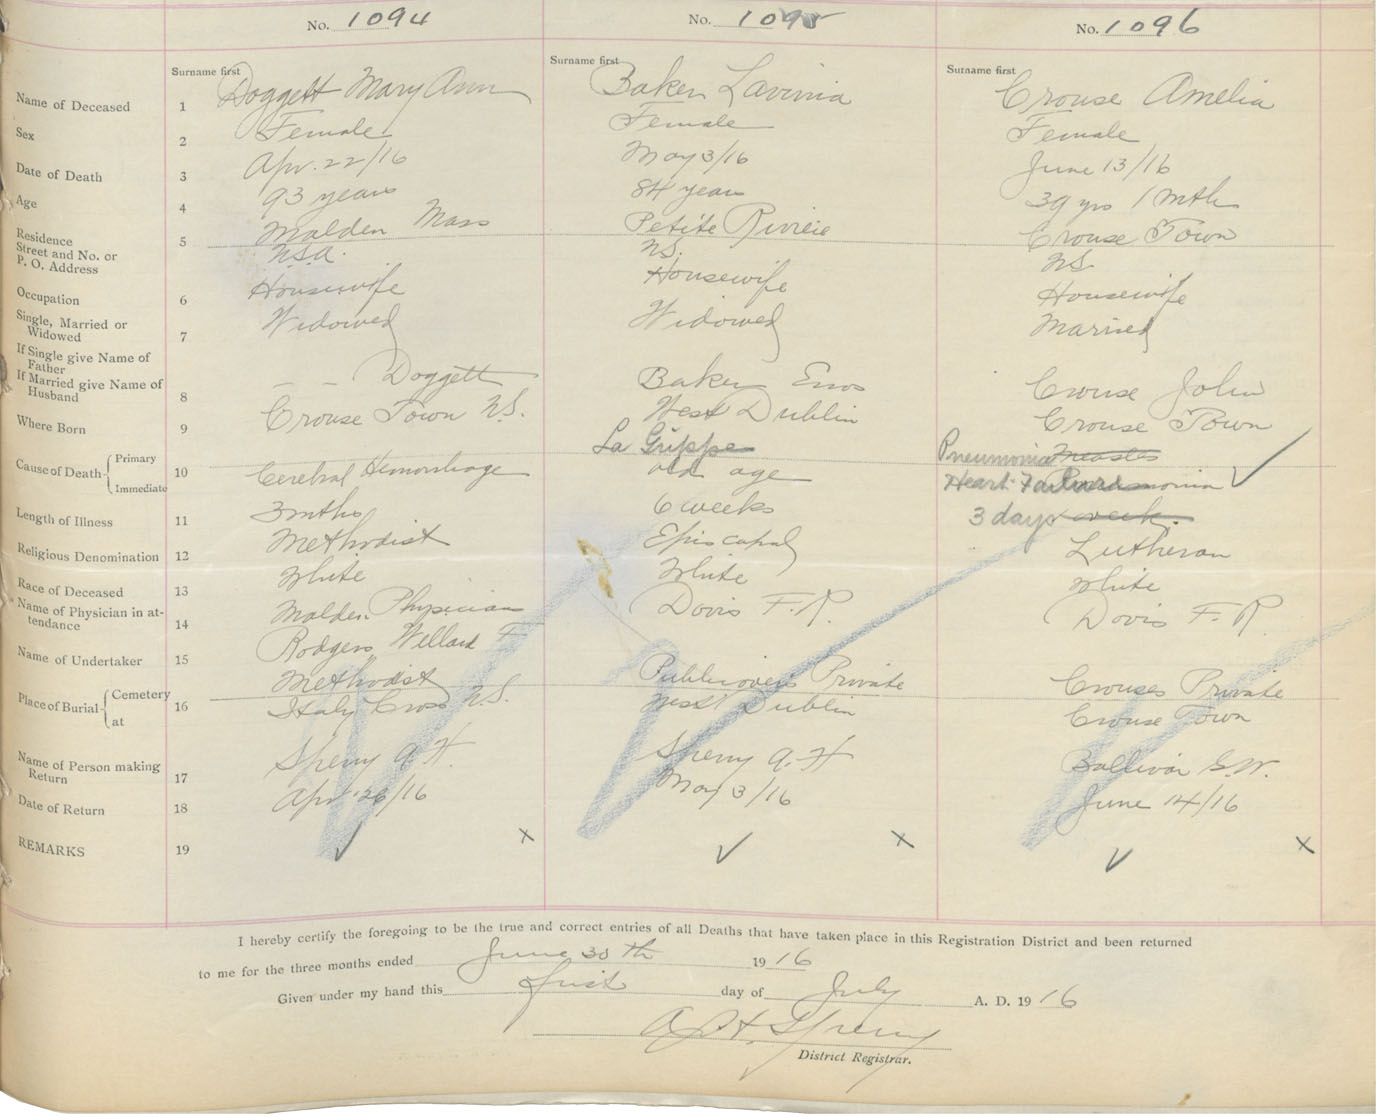 No. 1094
No. 1095
No. 1096
Surname first
Surname first
Surname first
Name of Deceased 1 Doggett Mary Ann Baker Lavinia Crouse Amelia
Sex 2 Female Female Female
Date of Death 3 Apr. 22/16 May 3/16 June 13/16
Age 4 93 years 84 years 39 yrs 1 mth
Residence Malden Mass Petite Riviere Crouse Town
Street and No. or 5 NS. NS.
P. O. Address
Occupation 6 Housewife Housewife Housewife
Single, Married or
Widowed 7 Widowed Widowed Married
If Single give Name of
Father
If Married give Name of
Husband 8 — — Doggett Baker Enos Crouse John
Where Born 9 Crouse Town N.S. West Dublin Crouse Town
Cause of Death Primary La Grippe Pneumonia Measles
Immediate 10 Cerebral Hemorrhage old age Heart Failure Pneumonia
Length of Illness 11 3 mths 6 weeks 3 days week.
Religious Denomination 12 Methodist Episcopal Lutheran
Race of Deceased 13 White White White
Name of Physician in at-
tendance 14 Malden Physician Davis F. R. Davis F. R.
Name of Undertaker 15 Rodgers, Willard F
Place of Burial Cemetery 16 Methodist Publicovers Private Crouses Private
at Italy Cross N.S. West Dublin Crouse Town
Name of Person making
Return 17 Sperry A. H. Sperry A. H. Bolivar G.W.
Date of Return 18 Apr 26/16 May 3/16 June 14/16
REMARKS 19 ✓ x ✓ x ✓ x
I hereby certify the foregoing to be the true and correct entries of all Deaths that have taken place in this Registration District and been returned
to me for the three months ended June 30th 1916
Given under my hand this first day of July A. D. 1916
A. H. Sperry
District Registrar.